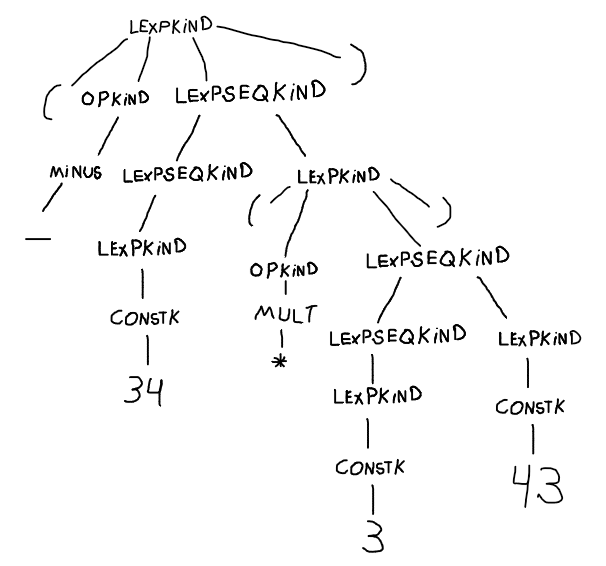 LEXPKiND
( OPKiND LEXPSEQKiND )
MiNUS LEXPSEQKiND LEXPKiND
— LEXPKiND ( )
OPKiND LEXPSEQKiND
CONSTK MULT
LEXPSEQKiND LEXPKiND
34 *
LEXPKiND CONSTK
CONSTK 43
3